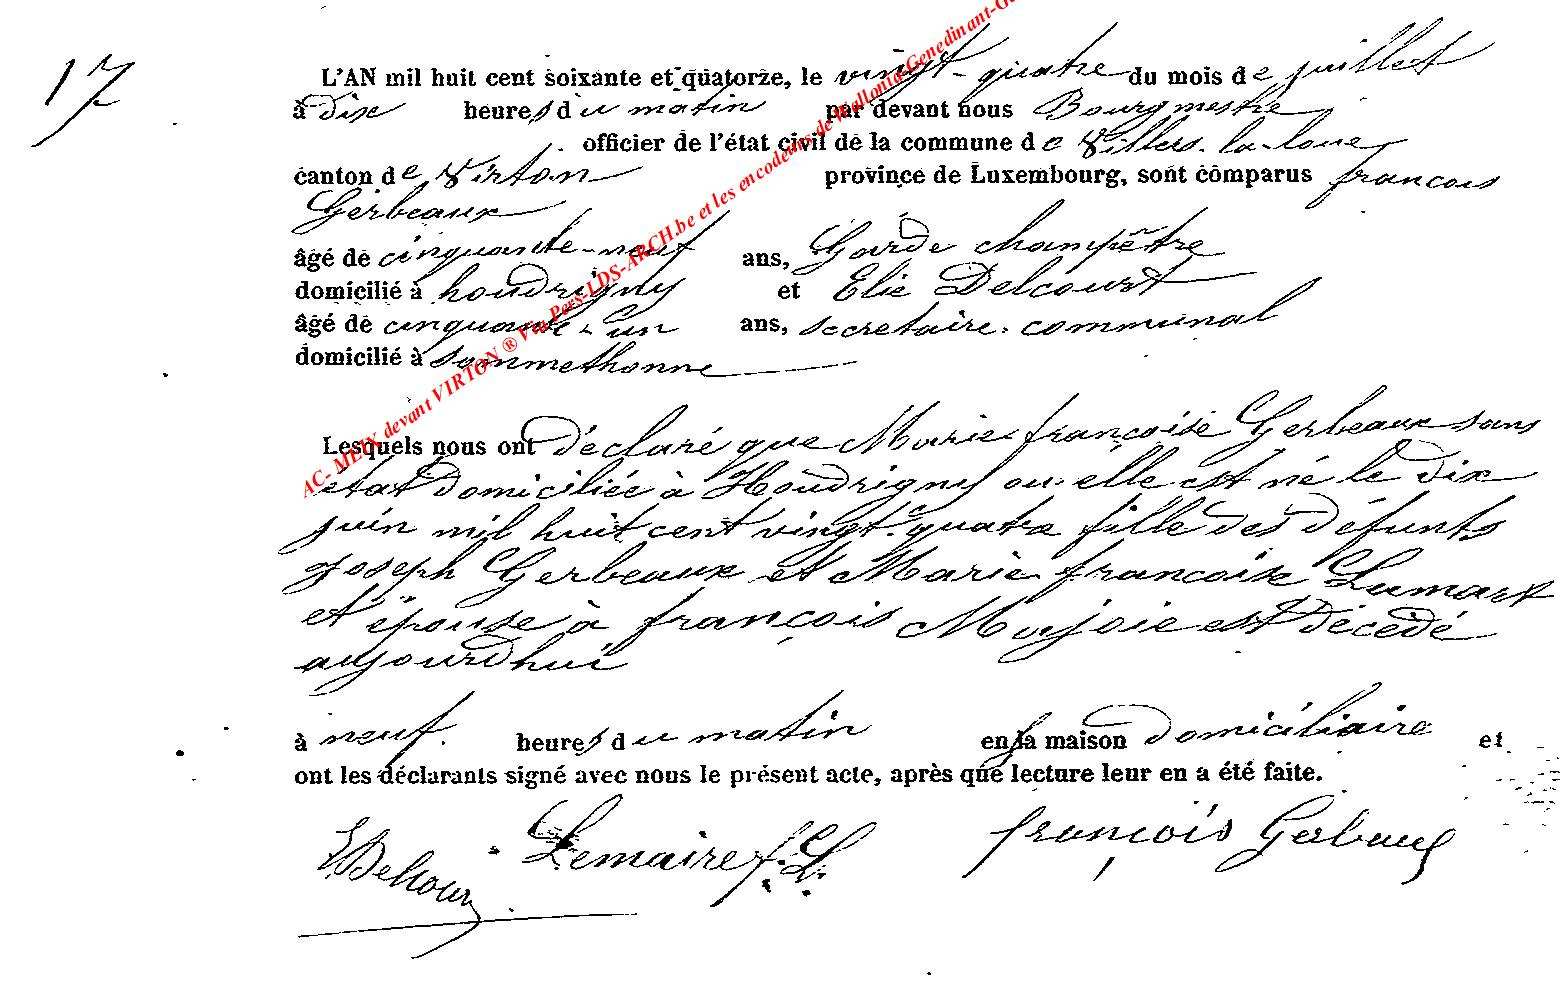 17
L'AN mil huit cent soixante et quatorze, le vingt-quatre du mois de juillet
à dix heures du matin par devant nous Bourgmestre
officier de l'état civil de la commune de Villers-la-loue
canton de Virton province de Luxembourg, sont comparus francois
Gerbeaux
âgé de cinquante-neuf ans, Garde champêtre
domicilié à houdrigny et Elie Delcourt
âgé de cinquante-un ans, secretaire communal
domicilié à sommethonne
Lesquels nous ont déclaré que Marie françoise Gerbeaux sans
état domiciliée à Houdrigny ou elle est né le dix
juin mil huit cent vingt-quatre fille des défunts
joseph Gerbeaux et Marie francoise Lumart
et épouse à françois Marjoie est décédé
aujourdhui
à neuf heures du matin en la maison domiciliaire et
ont les déclarants signé avec nous le présent acte, après que lecture leur en a été faite.
EDelcourt Lemaire f. L. françois Gerbaux
AC- MEIX devant VIRTON ® Via Pers-LDS-ARCH.be et les encodeurs de Wallonia-Genedinant-G